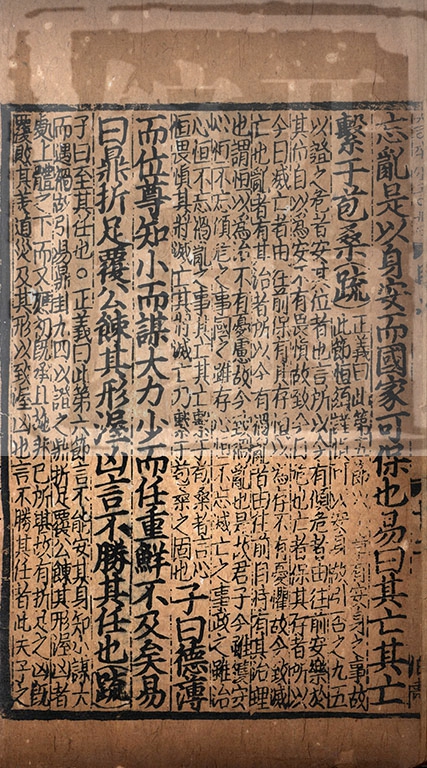 忘亂是以身安而國家可保也易曰其亡其亡
繫于苞桑疏
正義曰此第五節以上章有安身之事故
此節恒須謹慎可以安身故引否之九五
以證之危者安其位者也言所以今有傾危者由往前安樂於
其位自以為安不有畏慎故致今日危也亡者保其存者所以
今日滅亡者由往前保有其存恒以為存不有憂懼故今致滅
亡也亂者有其治者所以今有禍亂者由往前自恃有其治理
也謂恒以為治不有憂慮故今致禍亂也是故君子今雖獲安
心恒不忘傾危之事國之雖存心恒不忘滅亡之事政之雖治
心恒不忘禍亂之事其亡其亡繫于苞桑者言心
恒畏慎其將滅亡其將滅亡乃繫于苞桑之固也
子曰德薄
而位尊知小而謀大力少而任重鮮不及矣易
曰鼎折足覆公餗其形渥凶言不勝其任也疏
子曰至其任也○正義曰此第六節言不能安其身知小謀大
而遇禍故引易鼎卦九四以證之鼎折足覆公餗其形渥凶者
處上體之下而又應初既承且施非己所堪故有折足之凶既
覆敗其美道災及其形以致渥凶也言不勝其任者此夫子之